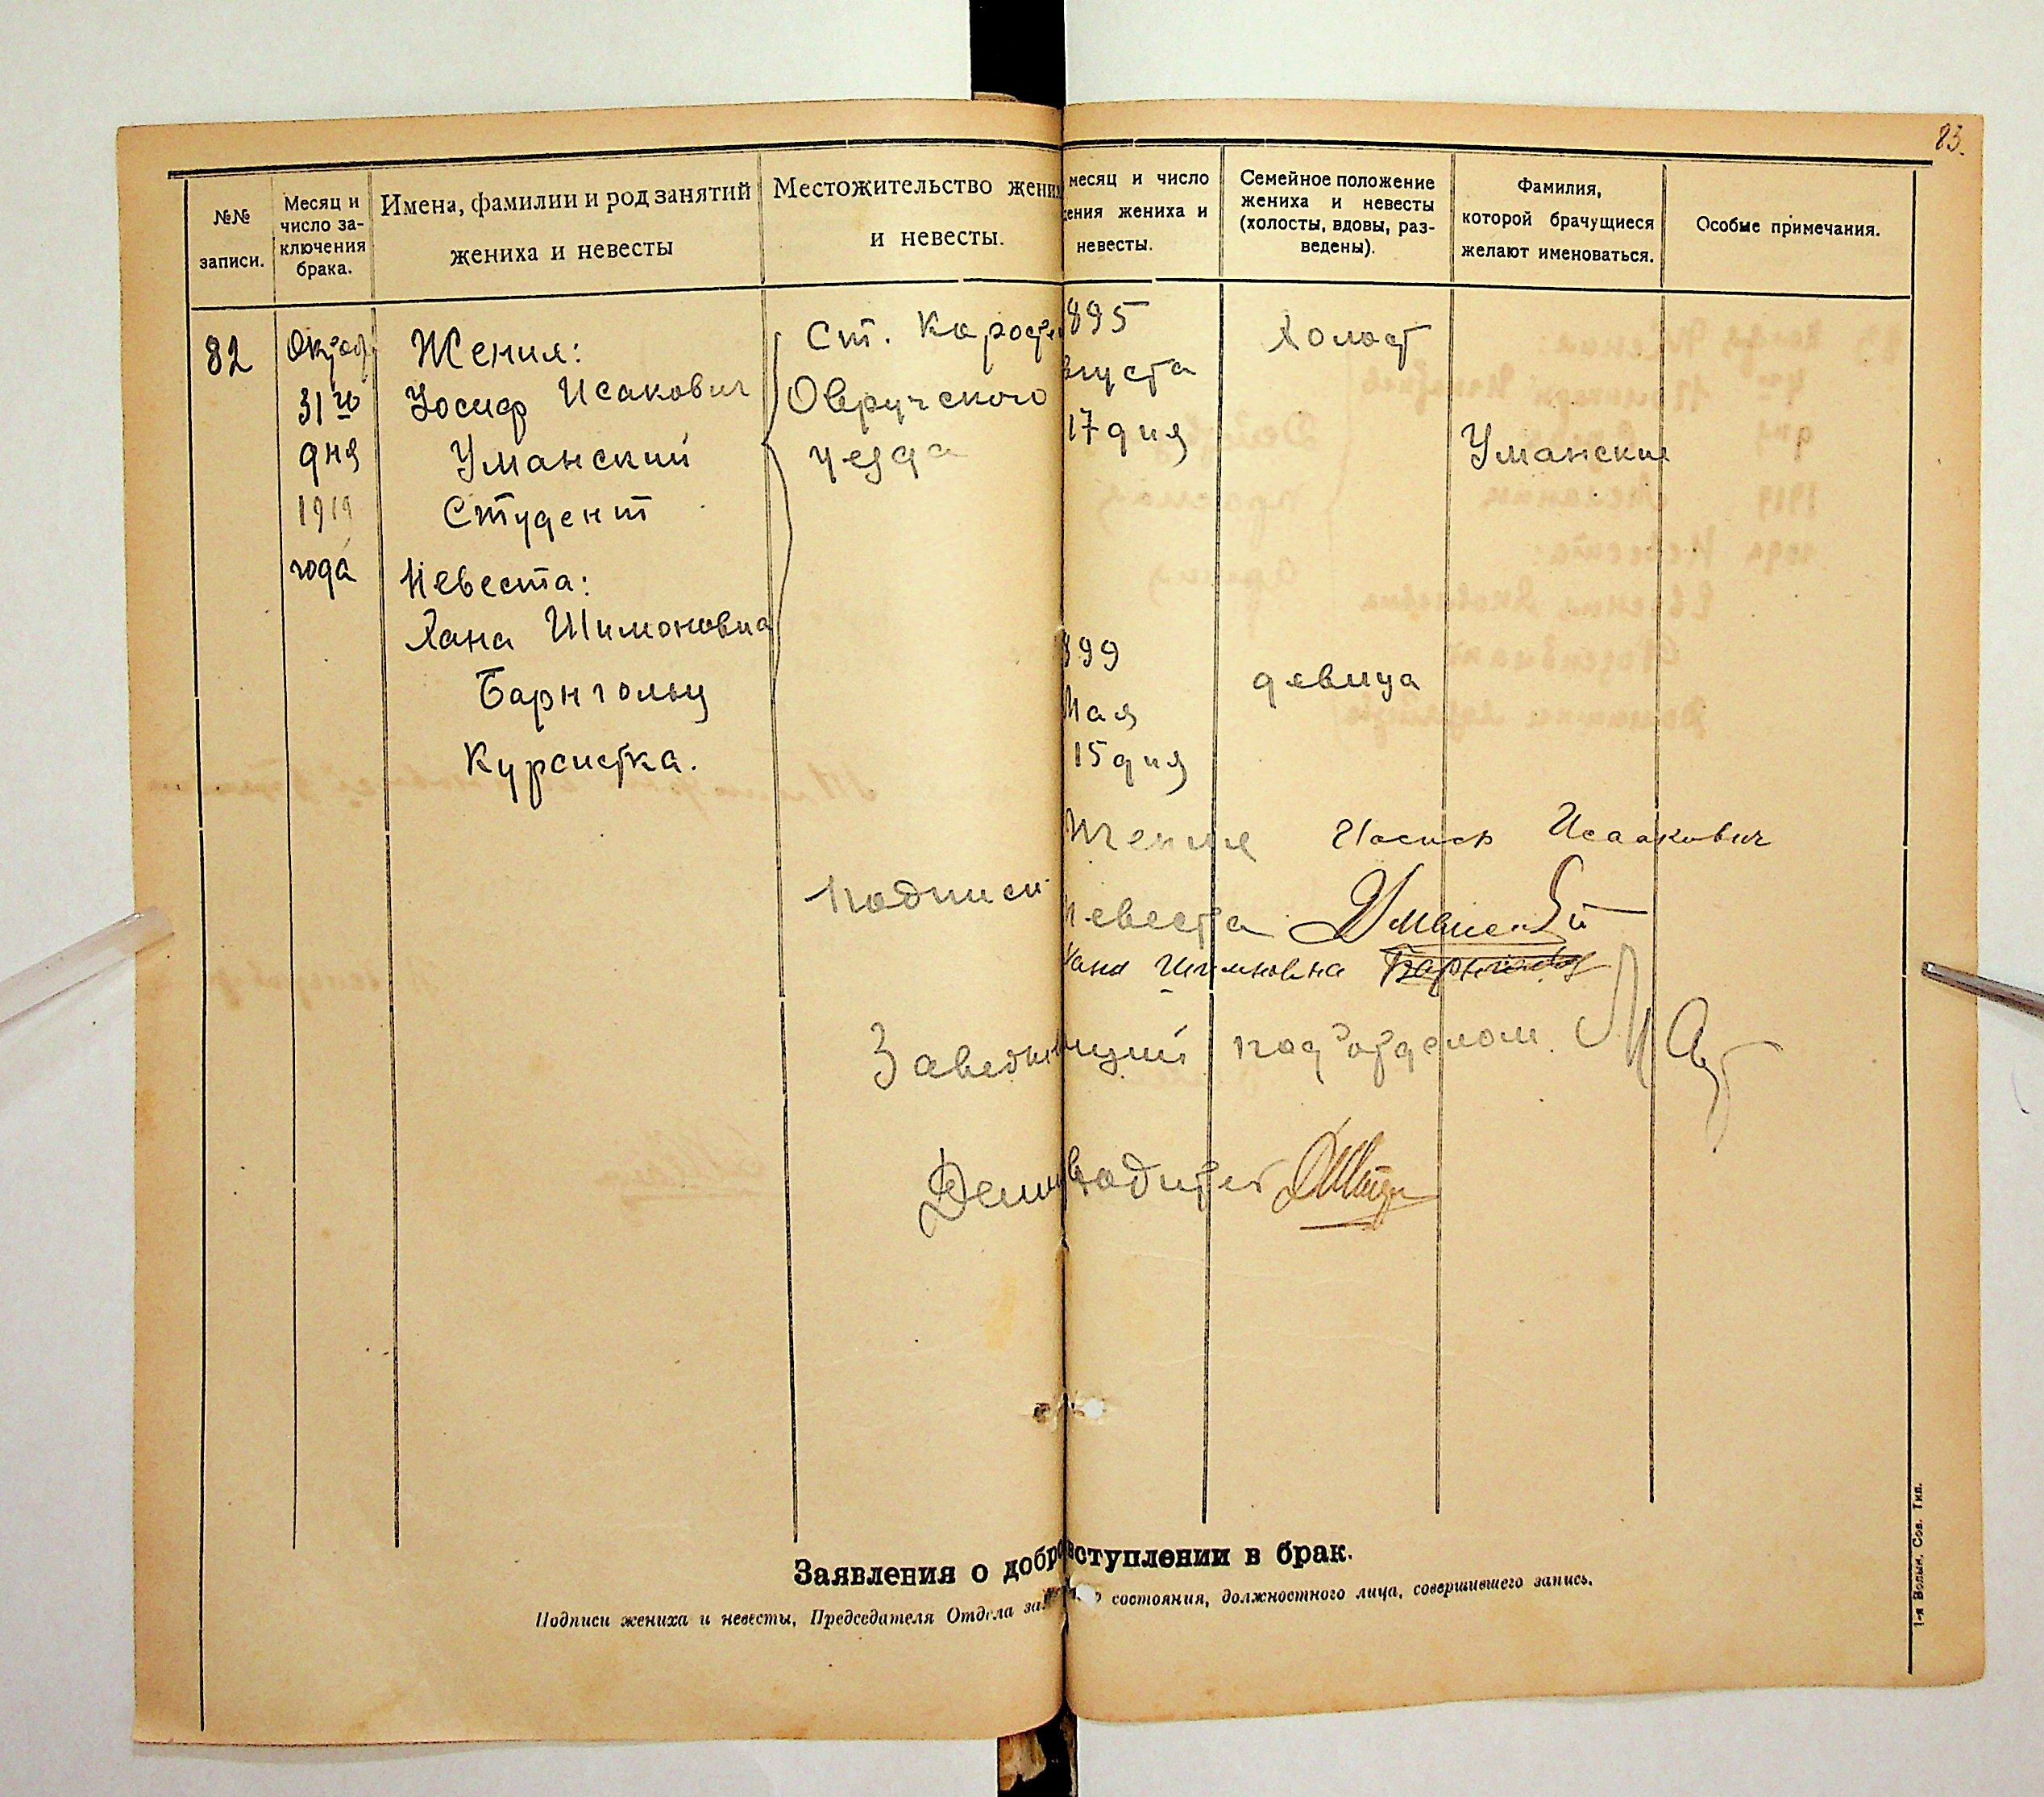 83.
№№
записи.
Месяц и
число за-
ключения
брака.
Имена, фамилии и род занятий
жениха и невесты
Местожительство жених
и невесты.
месяц и число
ения жениха и
невесты.
Семейное положение
жениха и невесты
(холосты, вдовы, раз-
ведены).
Фамилия,
которой брачущиеся
желают именоваться.
Особые примечания.
82
Октяб
31 го
дня
1919
года
Жених:
Иосиф Исакович
Уманский
Студент
Невеста:
Хана Шимоновна
Барнгольц
Курсистка.
Ст. Корост
Овручского
уезда
895
вгуста
17 дня
899
Мая
15 дня
Холост
девица
Уманские
Подписи
Жених Иосиф Исаакович
Невеста Уманский
Хана Шимновна
Заведы ющий подотделом
Делов водитель
Заявления о добро вступлении в брак.
Подписи жениха и невесты, Председателя Отдела за состояния, должностного лица, совершившего запись.
1-я Волын. Сов. Тип.